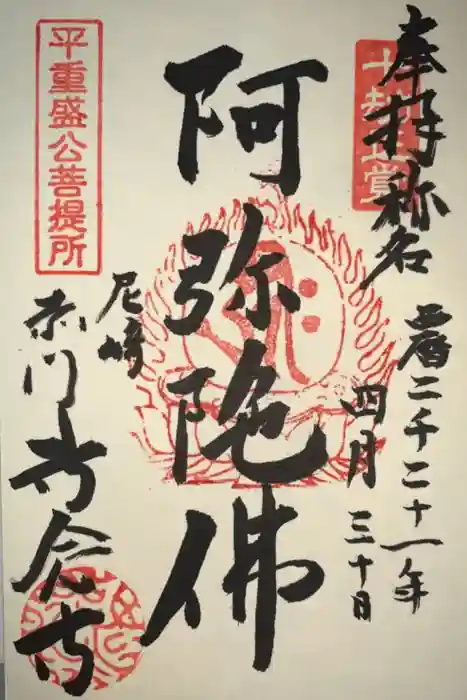 奉拝称名
十劫正覚
西暦二千二十一年
四月三十日
阿弥陀佛
平重盛公菩提所
尼崎
赤門専念寺